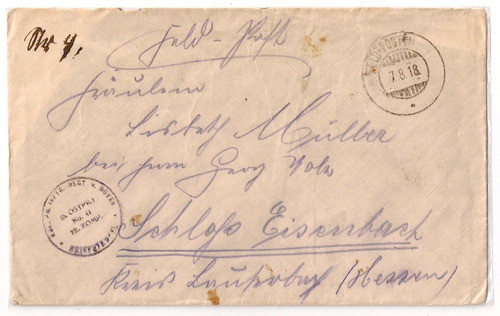 Nr 4.
Feld-Post
Fräulein
Lisbeth Müller
bei Herrn Georg Volz
Schloß Eisenbach
Kreis Lauterbach (Hessen)
7.8.18
INFTR. REGT. V. BOYEN
(5. OSTPR.)
No. 41
12. KOMP.